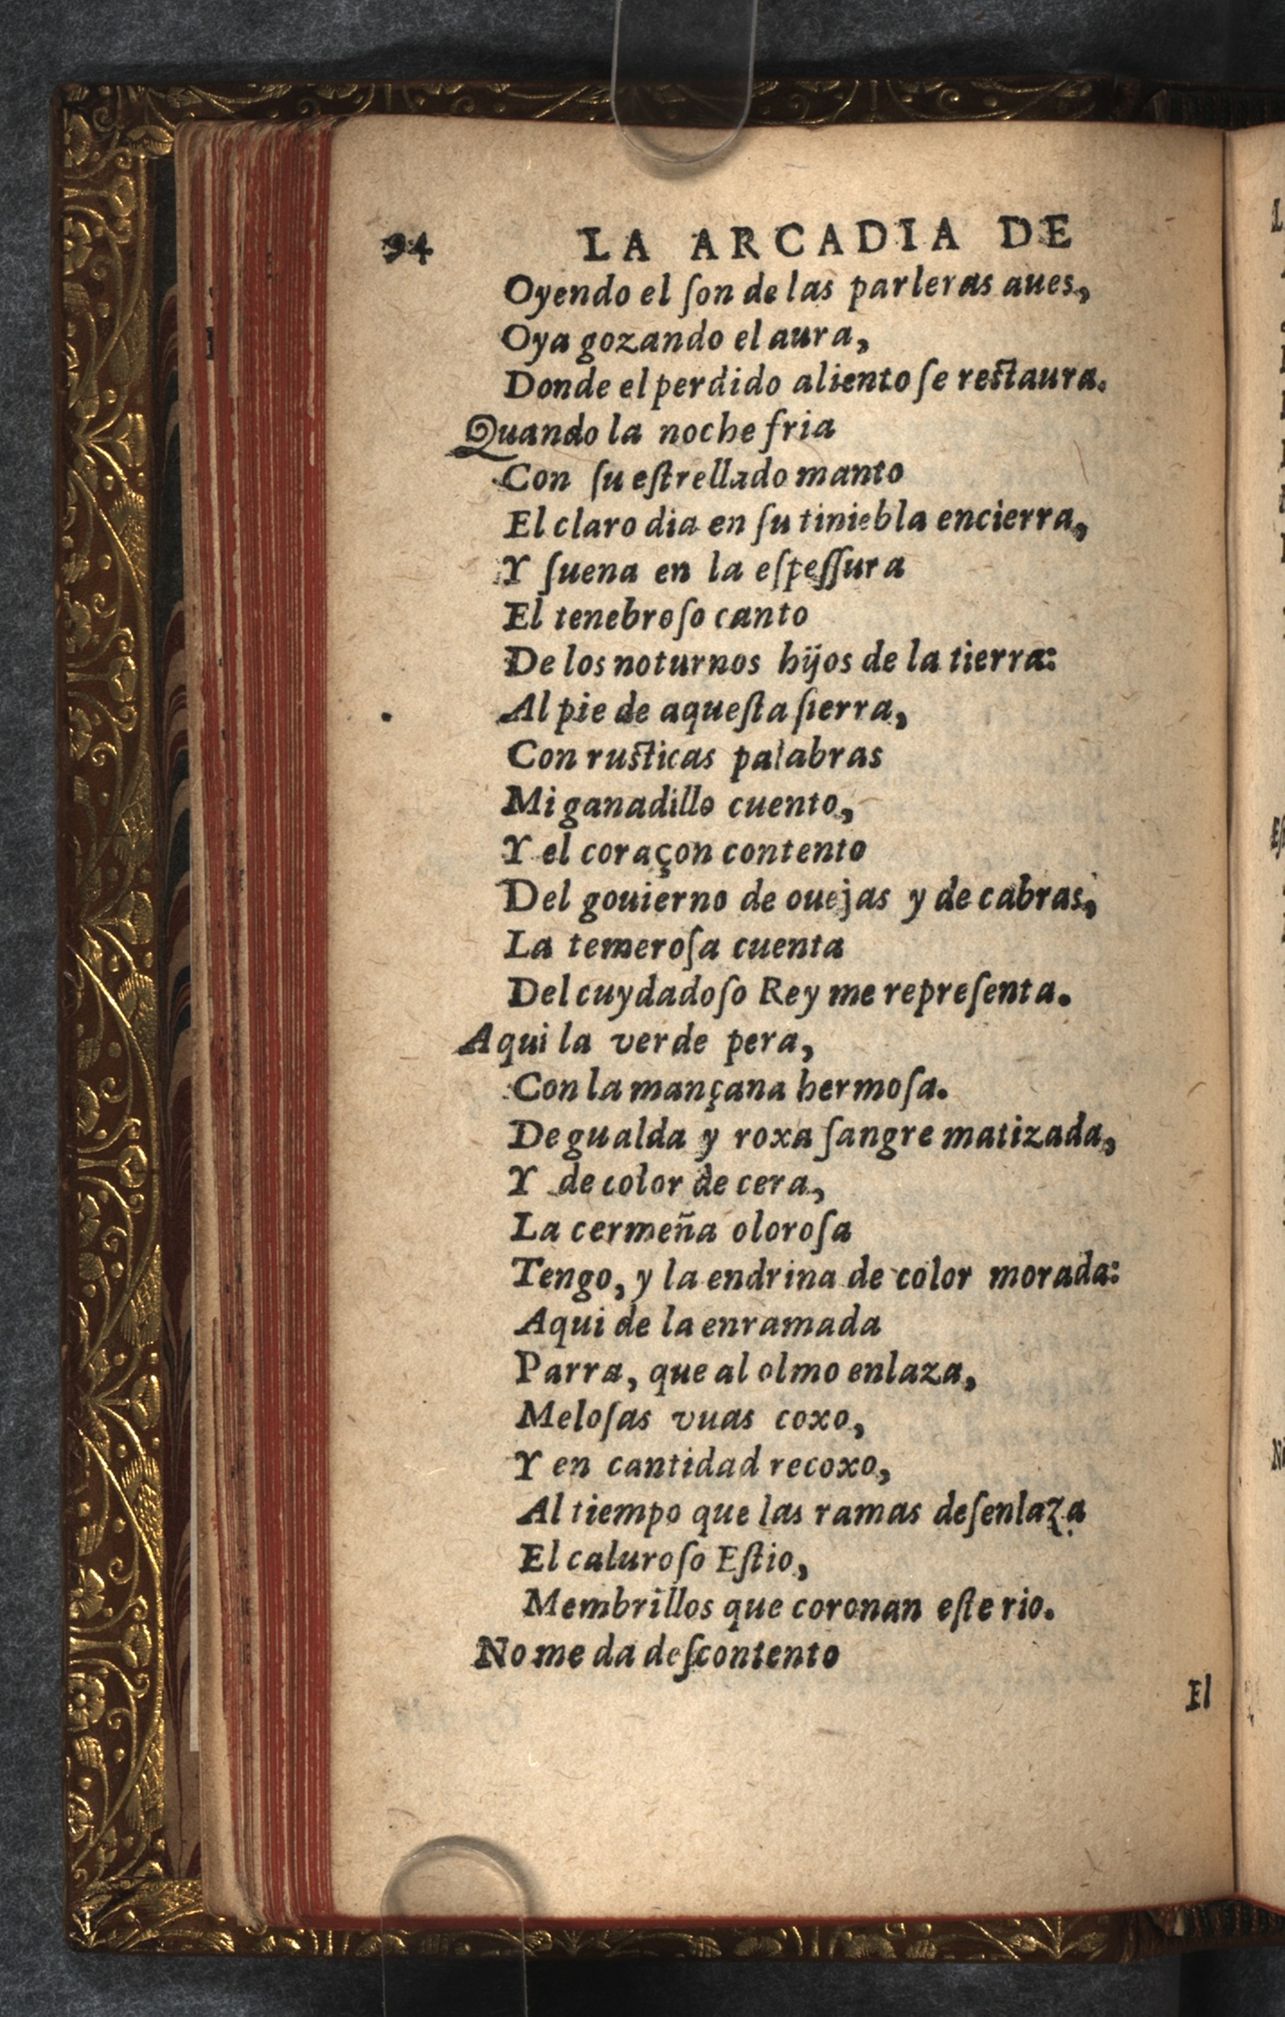 94 LA ARCADIA DE
Oyendo el ſon de las parleras aues,
Oya gozando el aura,
Donde el perdido aliento ſe reſtaura.
Quando la noche fria
Con ſu eſtrellado manto
El claro dia en ſu tiniebla encierra,
Y ſuena en la eſpeſſura
El tenebroſo canto
De los noturnos hijos de la tierra:
Al pie de aqueſta ſierra,
Con ruſticas palabras
Mi ganadillo cuento,
Y el coraçon contento
Del gouierno de ouejas y de cabras,
La temeroſa cuenta
Del cuydadoſo Rey me repreſenta.
Aqui la verde pera,
Con la mançana hermoſa.
De gualda y roxa ſangre matizada,
Y de color de cera,
La cermeña oloroſa
Tengo, y la endrina de color morada:
Aqui de la enramada
Parra, que al olmo enlaza,
Meloſas vuas coxo,
Y en cantidad recoxo,
Al tiempo que las ramas deſenlaza
El caluroſo Eſtio,
Membrillos que coronan eſte rio.
No me da deſcontento
El